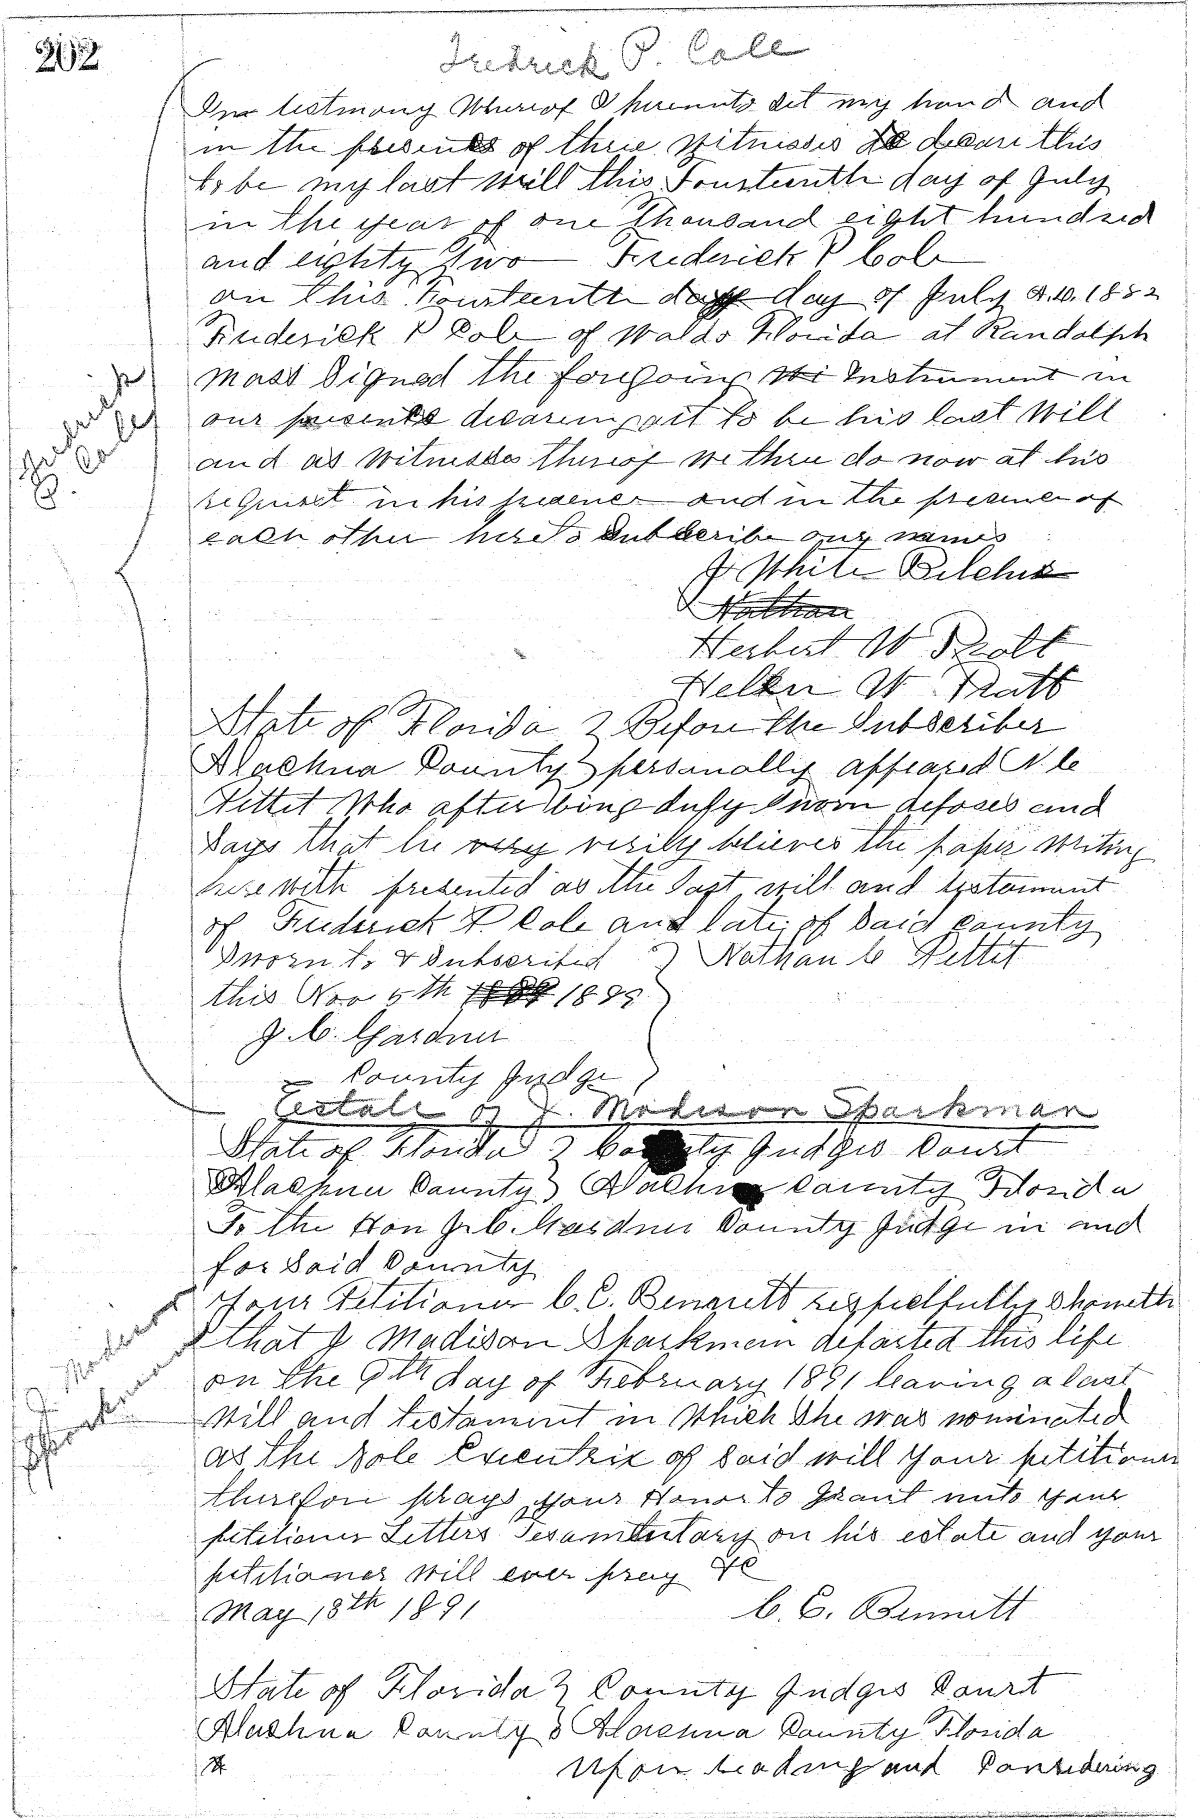 202
Fredrick P. Cole
In testmony Whereof I hereunto set my hand and
in the presents of three Witnesses do decare this
to be my last Will this Fourteenth day of July
in the year of one Thousand eight hundred
and eighty Two Frederick P Cole
on this Fourteenth day day of July A.D. 1882
Frederick P Cole of Waldo Florida at Randolph
Mass Signed the foregoing Instrument in
our presents decareing it to be his last Will
and as Witnesses thereof We three do now at his
request in his presence and in the presence of
each other hereto Subscribe our names
Fredrick
P. Cole
J White Belcher
Nathan
Herbert W Pratt
Hellen W Pratt
State of Florida } Before the Subscriber
Alachua County } personally appeared N. C
Pettit Who after being duly Sworn deposes and
Says that he very verily believes the paper Writing
herewith presented as the last will and testament
of Frederick P. Cole and late of Said County
Sworn to & Subscribed } Nathan C Pettit
this Nov 5th 1889
J. C. Gardner
County Judge
Estate of J. Madison Sparkman
State of Florida } County Judges Court
Alachua County } Alachua County Florida
To the Hon J. C. Gardner County Judge in and
for Said County
Your Petitioner C. E. Bennett respectfully Showeth
that J Madison Sparkman departed this life
on the 9th day of February 1891 leaving a last
Will and testament in Which She was nominated
as the Sole Executrix of Said will Your petitioner
therefore prays your Honor to Grant unto your
petitioner Letters Tesamentary on his estate and your
petitioner Will ever pray &c
J. Madison
Sparkman
May 13th 1891 C. E. Bennett
State of Florida } County Judges Court
Alachua County } Alachua County Florida
Upon Reading and Considering